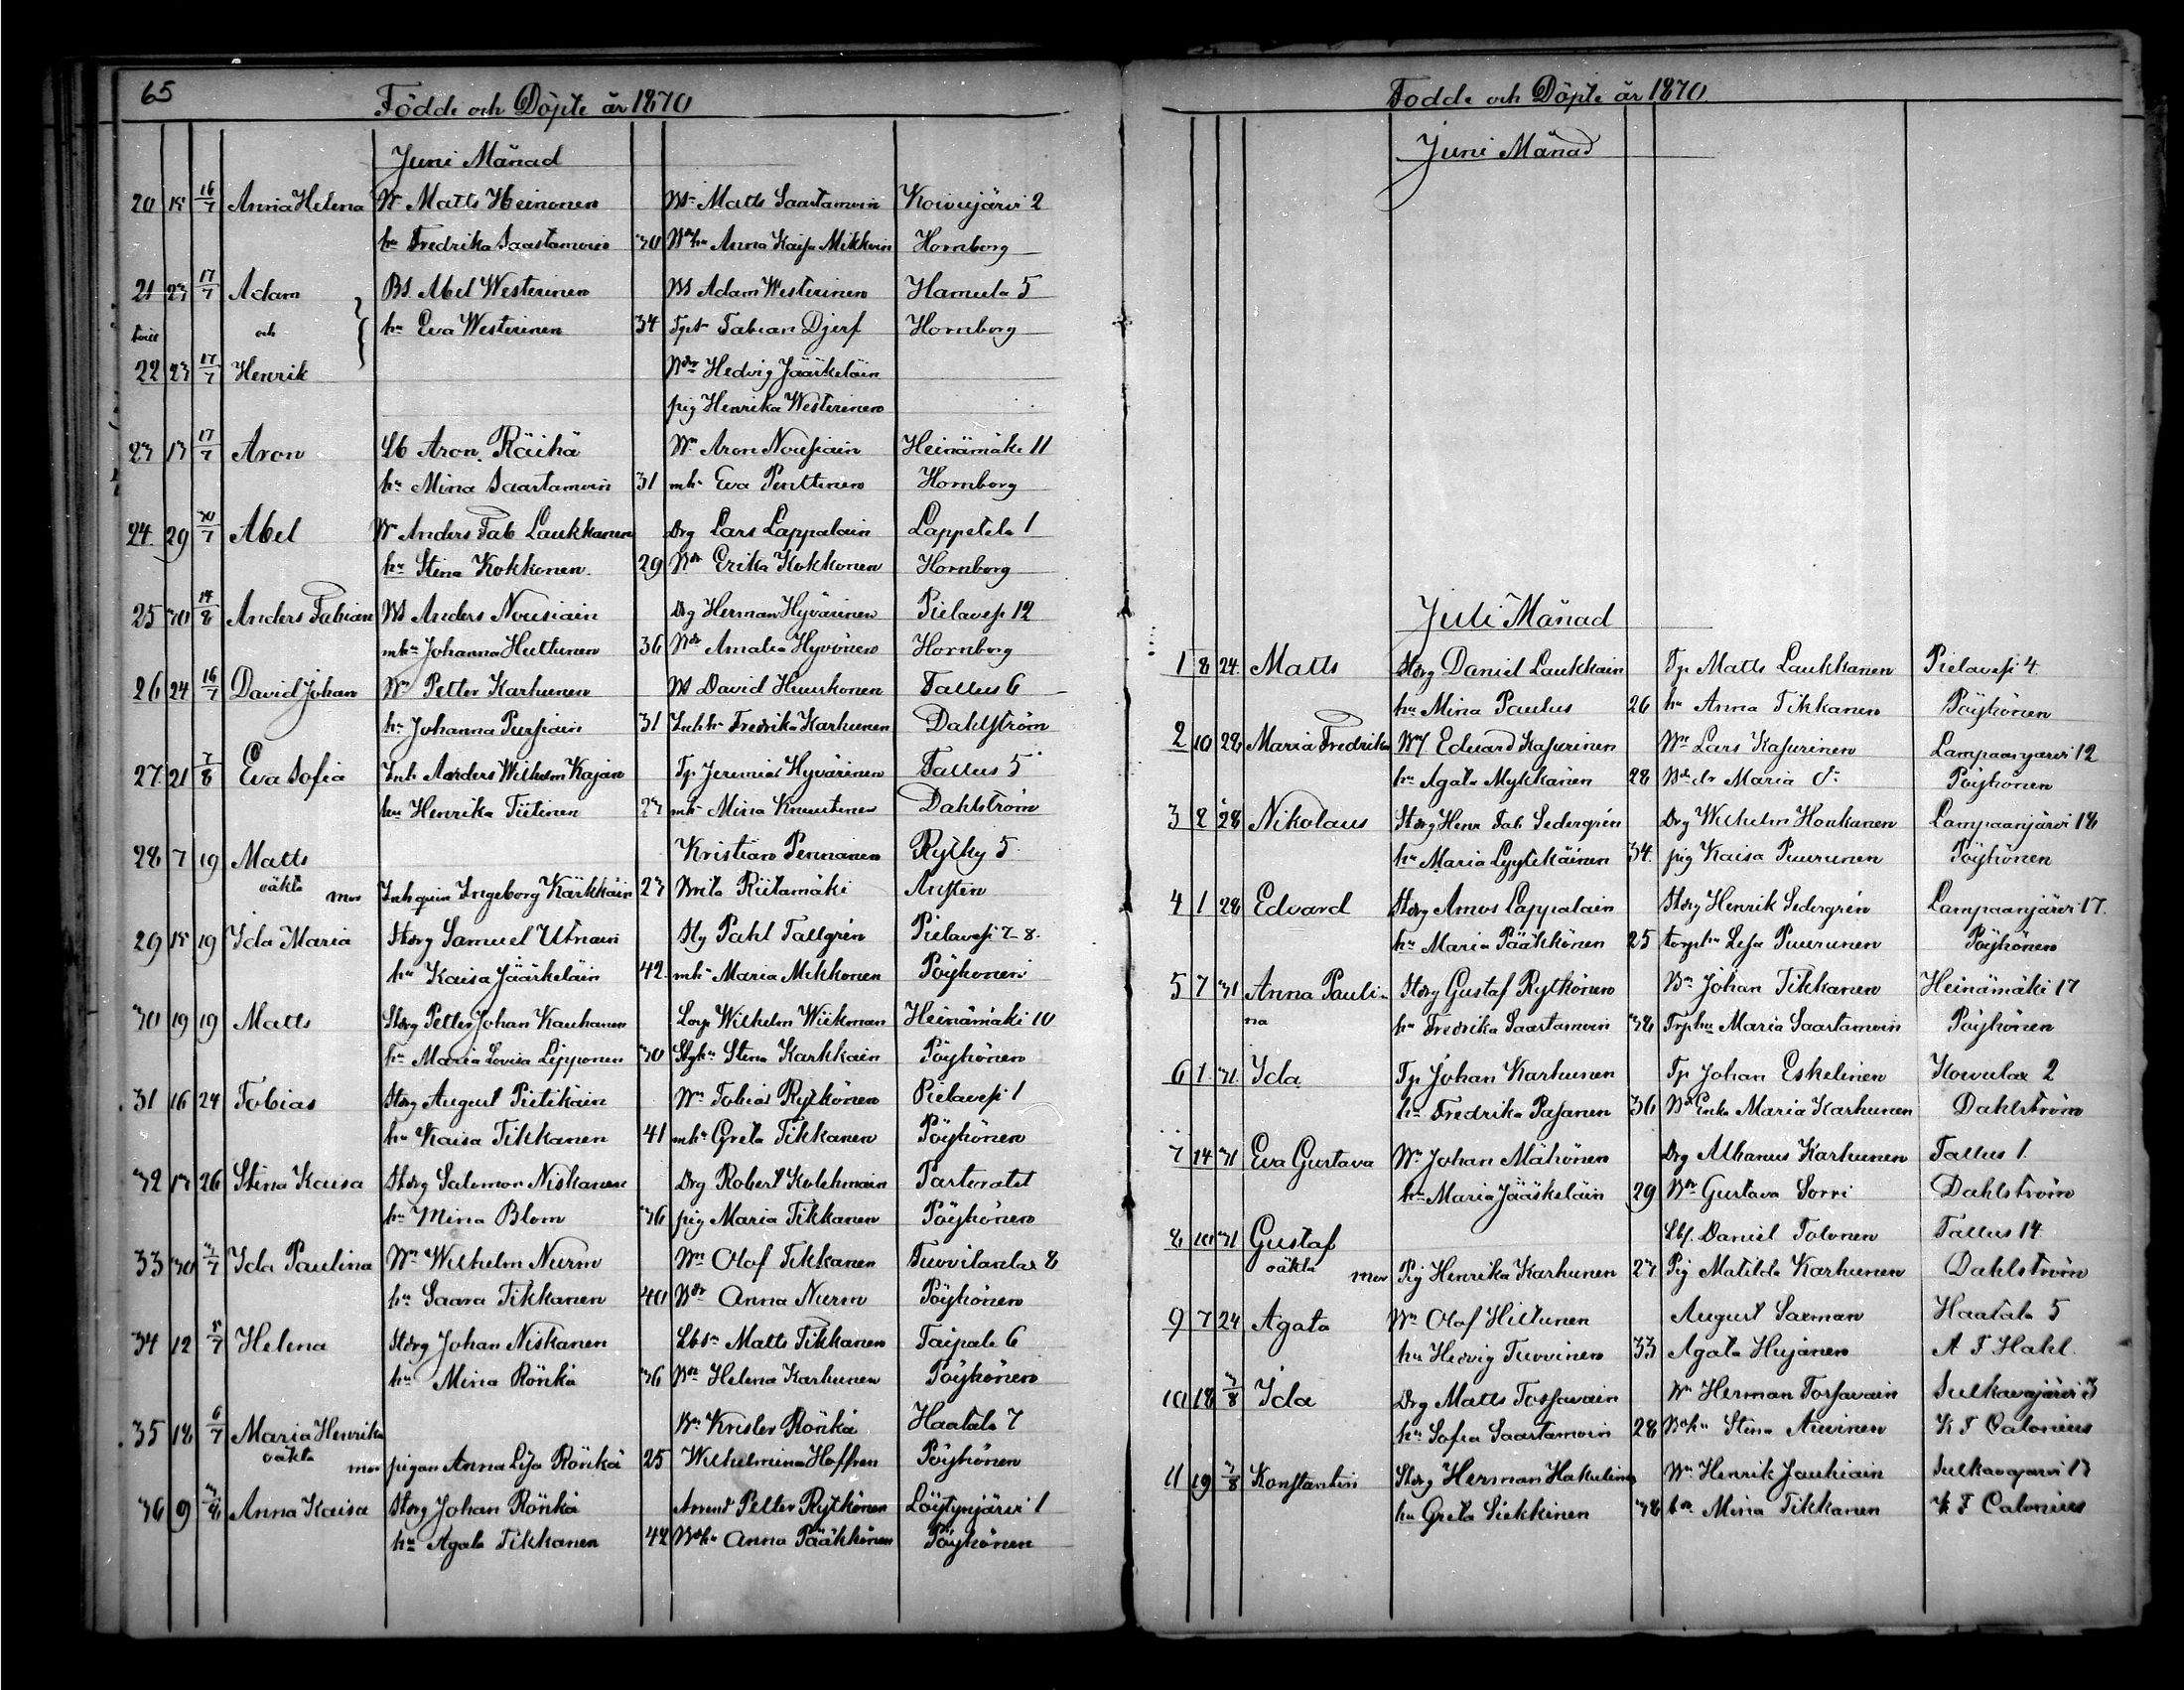 65
Födde och Döpte år 1870
Juni Månad
20 15 16/7 Anna Helena Wn Matts Heinonen Bs Matts Saastamoin Koivujärvi 2
hu Fredrika Saastamoin 30 Anna Kaisa Mikkoin Hornborg
21 23 17/7 Adam Bs. Abel Westerinen Bs Adam Westerinen Hamula 5
tvill och hu Eva Westerinen 34 Fabian Djerf Hornborg
22 23 17/7 Henrik Hedvig Jääskeläin
pig Henrika Westerinen
23 13 17/7 Aron Lb Aron Räihä Wn Aron Nousiain Heinämäki 11
hu Mina Saastamoin 31 mhu Eva Penttinen Hornborg
24 29 30/7 Abel Wn Anders Fab Laukkanen Drg Lars Lappalain Lappetelä 1
hu Stina Kokkonen 29 Wdr Erika Kokkonen Hornborg
25 30 14/8 Anders Fabian Bs Anders Nousiain Drg Herman Hyvärinen Pielavesi 12
mhu Johanna Huttunen 36 Wdr Amalia Hyvönen Hornborg
26 24 16/7 David Johan Wn Petter Karhunen Bs David Huuskonen Tallus 6
hu Johanna Pursiain 31 Inhhu Fredrika Karhunen Dahlström
27 21 7/8 Eva Sofia Inh Anders Wilhelm Kajan Tp Jeremias Hyvärinen Tallus 5
hu Henrika Tiitinen 23 mhu Mina Knuutinen Dahlström
28 7 19 Matts Kristian Pennanen Rytky 5
oäkta mor Inhqvin Ingeborg Kärkkäin 23 Brita Riitamäki Austen
29 15 19 Ida Maria Storg Samuel Utriain Pahl Tallgrén Pielavesi 7-8.
hu Kaisa Jääskeläin 42 mhu Maria Mikkonen Pöyhönen
30 19 19 Matts Storg Petter Johan Kauhanen Wilhelm Wiikman Heinämäki 10
hu Maria Lovisa Lipponen 30 Stina Karkkain Pöyhönen
31 16 24 Tobias Storg August Pietikäin Wn Tobias Rytkönen Pielavesi 1
hu Kaisa Tikkanen 41 mhu Greta Tikkanen Pöyhönen
32 13 26 Stina Kaisa Storg Salomon Niskanen Drg Robert Kolehmain Pastoratet
hu Mina Blom 36 pig Maria Tikkanen Pöyhönen
33 30 3/7 Ida Paulina Wn Wilhelm Nurm Wn Olof Tikkanen Tuovilanlax 8
hu Saara Tikkanen 40 Wdr Anna Nurm Pöyhönen
34 12 5/7 Helena Storg Johan Niskanen Matts Tikkanen Taipale 6
hu Mina Rönkä 36 Helena Karhunen Pöyhönen
35 18 6/7 Maria Henrika Krister Rönkä Haatala 7
oäkta mor pigan Anna Lisa Rönkä 25 Wilhelmina Hoffren Pöyhönen
36 9 Anna Kaisa Storg Johan Rönkä Petter Rytkönen Löytynjärvi 1
hu Agata Tikkanen 42 Anna Pääkkönen Pöyhönen
Födde och Döpte år 1870.
Juni Månad
Juli Månad
1 8 24 Matts Storg Daniel Laukkain Tp Matts Laukkanen Pielavesi 4
hu Mina Paulus 26 hu Anna Tikkanen Pöyhönen
2 10 28 Maria Fredrika Eduard Kasurinen Wn Lars Kasurinen Lampaanjärvi 12
hu Agata Mykkänen 28 Maria Pöyhönen
3 2 28 Nikolaus Storg Henr Fab Sedergrén Drg Wilhelm Honkanen Lampaanjärvi 18
hu Maria Lyytikäinen 34 pig Kaisa Puurunen Pöyhönen
4 1 28 Edvard Storg Amos Lappalain Storg Henrik Sedergrén Lampaanjärvi 17.
hu Maria Pääkkönen 25 torphu Lisa Puurunen Pöyhönen
5 7 31 Anna Pauli- Storg Gustaf Rytkönen Johan Tikkanen Heinämäki 17
na hu Fredrika Saastamoin 38 Maria Saastamoin Pöyhönen
6 1 31 Ida Tp Johan Karhunen Tp Johan Eskelinen Koivulax 2
hu Fredrika Pasanen 36 Enka Maria Karhunen Dahlström
7 14 31 Eva Gustava Wn Johan Mähönen Drg Albanus Karhunen Tallus 1
hu Maria Jääskeläin 29 Gustava Sorri Dahlström
8 10 31 Gustaf Daniel Tolonen Tallus 14
oäkta mor Pig Henrika Karhunen 23 Pig Matilda Karhunen Dahlström
9 7 24 Agata Wn Olof Hiltunen August Saxman Haatala 5
hu Hedvig Tuovinen 33 Agata Hujanen A F Hahl
10 18 3/8 Ida Drg Matts Tossavain Wn Herman Tossavain Sulkavajärvi 3
hu Sofia Saastamoin 28 Stina Auvinen K F Calonius
11 19 3/8 Konstantin Storg Herman Hakulinen Wn Henrik Jauhiain Sulkavajärvi 13
hu Greta Siekkinen 38 Mina Tikkanen K F Calonius